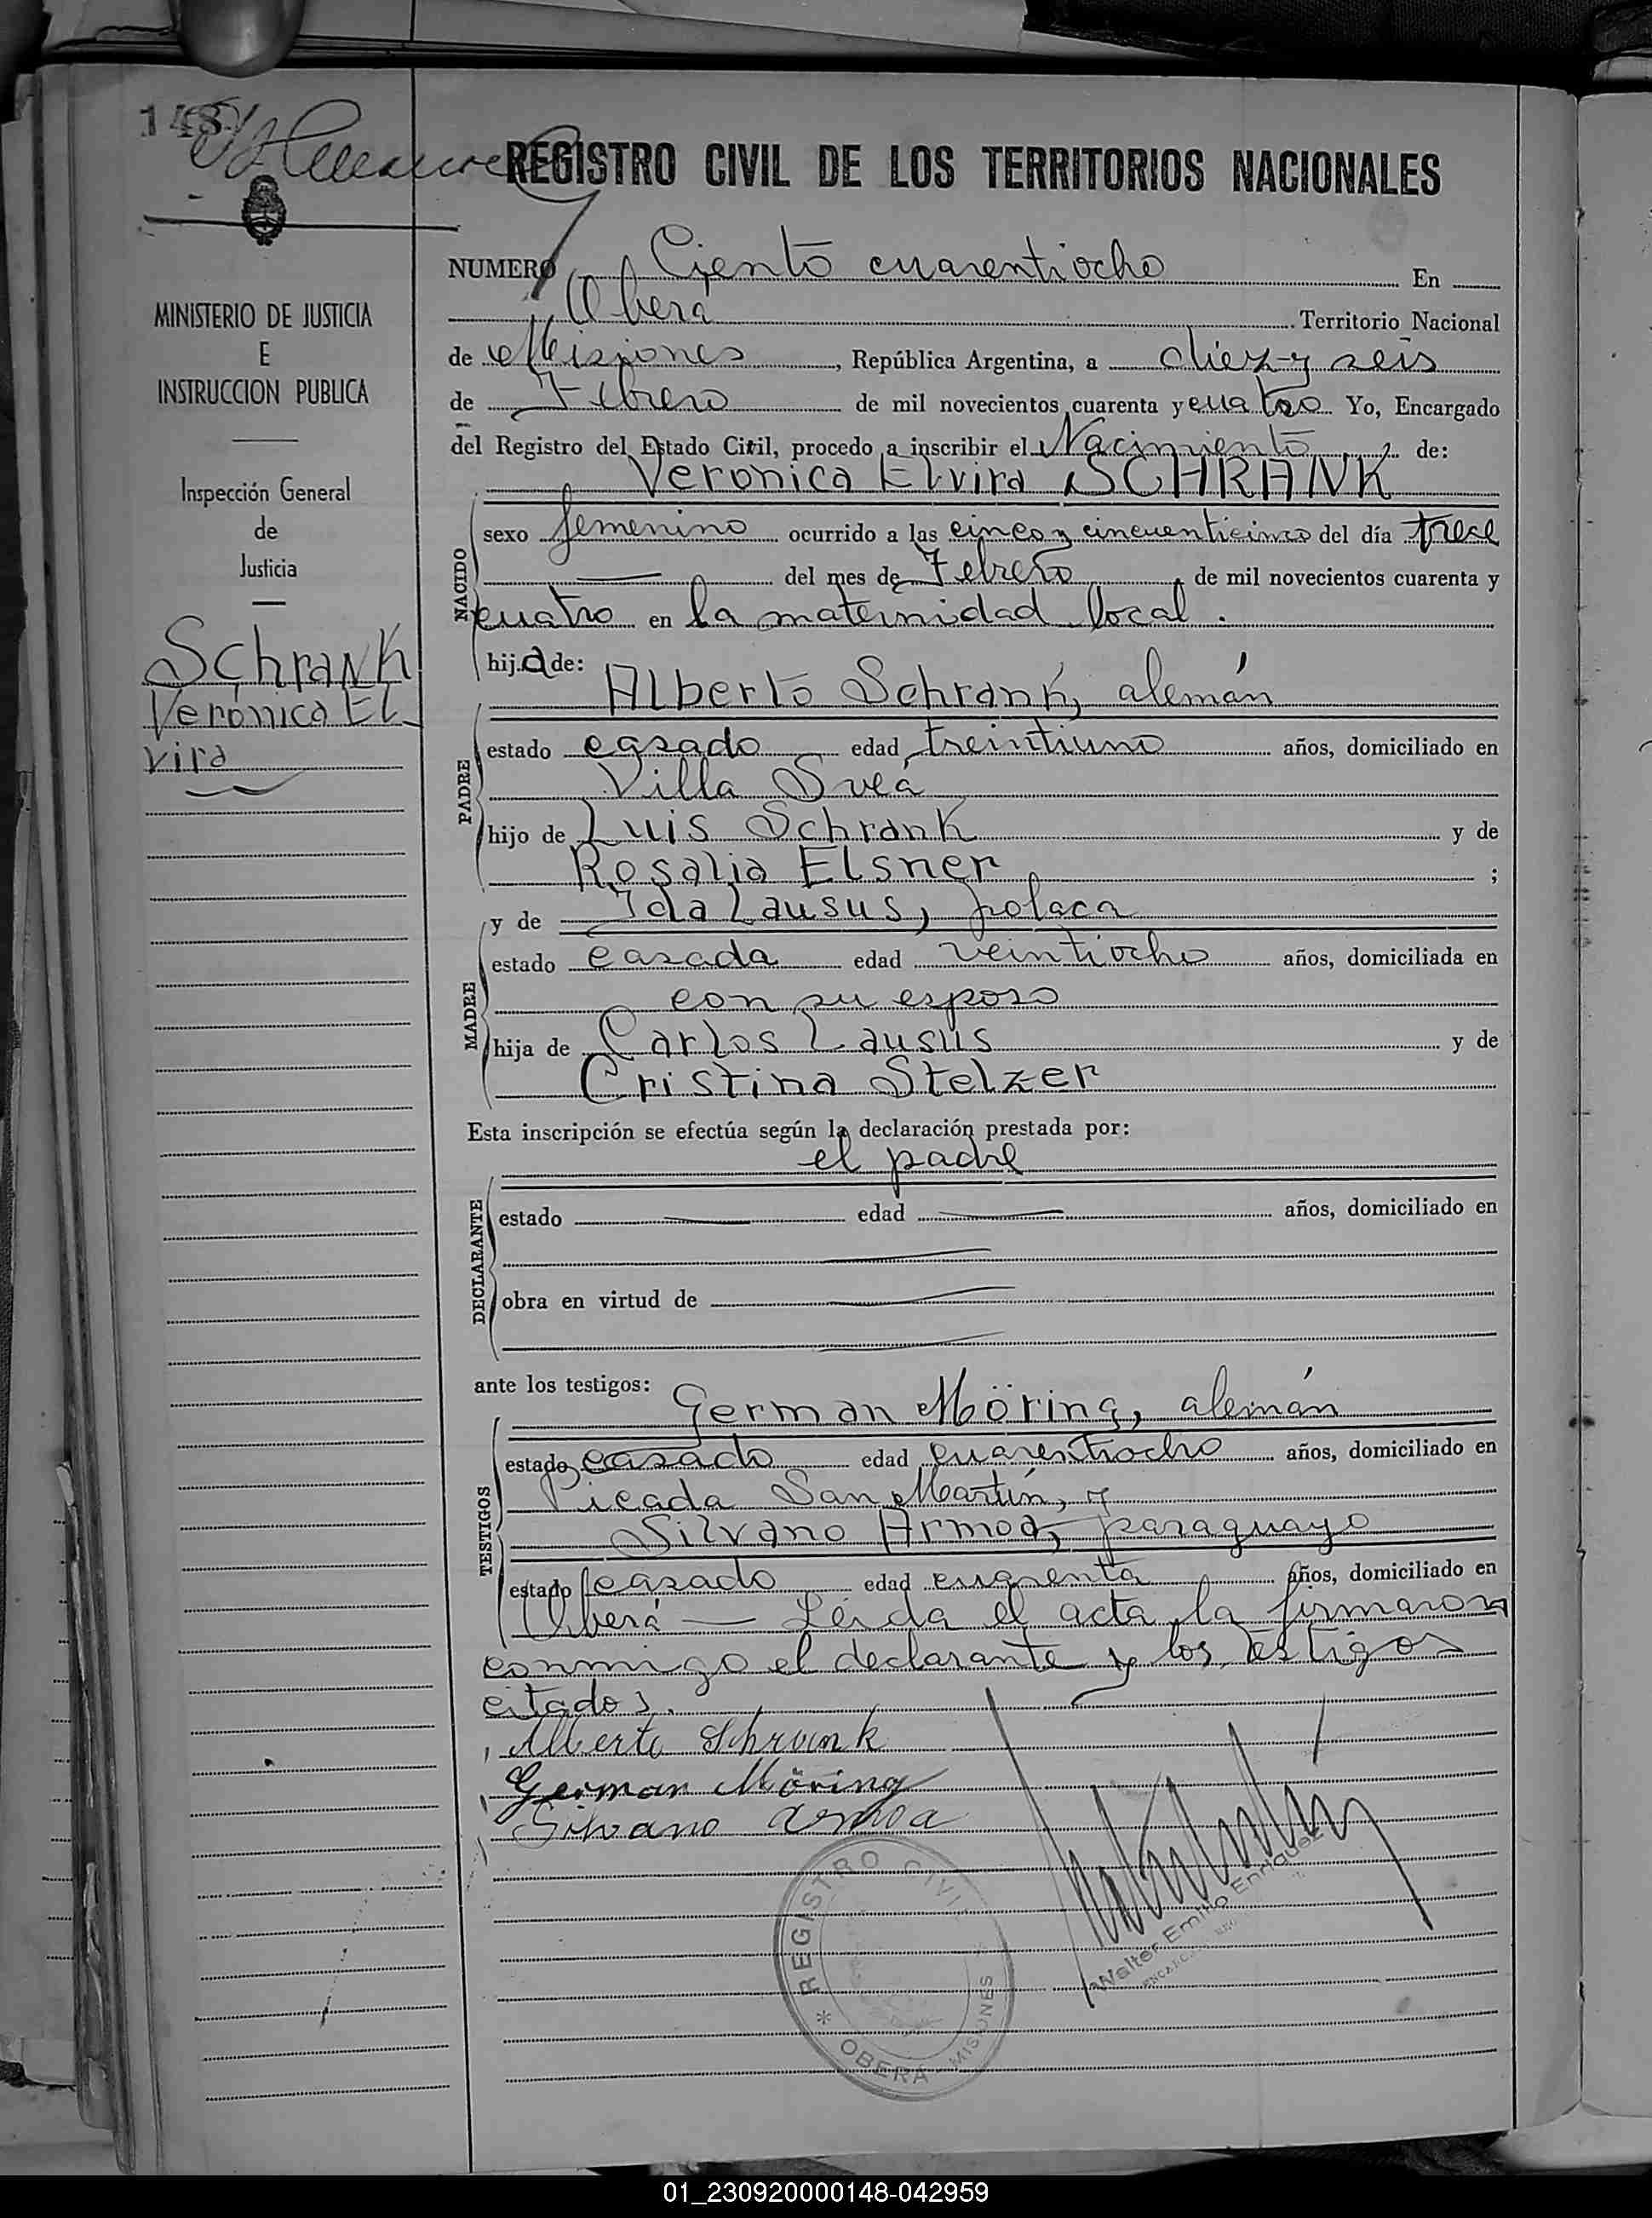 148
REGISTRO CIVIL DE LOS TERRITORIOS NACIONALES
MINISTERIO DE JUSTICIA
E
INSTRUCCION PUBLICA
Inspección General
de
Justicia
Schrank
Verónica El-
vira
NUMERO Ciento cuarentiocho En
Oberá Territorio Nacional
de Misiones, República Argentina, a diez y seis
de Febrero de mil novecientos cuarenta y cuatro Yo, Encargado
del Registro del Estado Civil, procedo a inscribir el Nacimiento de:
Verónica Elvira SCHRANK
NACIDO
sexo femenino ocurrido a las cinco y cincuenticinco del día trece
del mes de Febrero, de mil novecientos cuarenta y
cuatro en la maternidad local.
hija de:
PADRE
Alberto Schrank, alemán
estado casado edad treintiuno años, domiciliado en
Villa Sveá
hijo de Luis Schrank y de
Rosalia Elsner ;
MADRE
y de Ida Lausus, polaca
estado casada edad veintiocho años, domiciliada en
con su esposo
hija de Carlos Lausus y de
Cristina Stelzer
Esta inscripción se efectúa según la declaración prestada por:
el padre
DECLARANTE
estado edad años, domiciliado en
obra en virtud de
ante los testigos:
TESTIGOS
German Möring, alemán
estado casado edad cuarentiocho años, domiciliado en
Picada San Martín, y
Silvano Armoa, paraguayo
estado casado edad cuarenta años, domiciliado en
Oberá — Leída el acta la firmaron
conmigo el declarante y los testigos
citados.
Alberto Schrank
German Möring
Silvano Armoa
REGISTRO CIVIL
* OBERA - MISIONES
Walter Emilio Enriquez
01_230920000148-042959